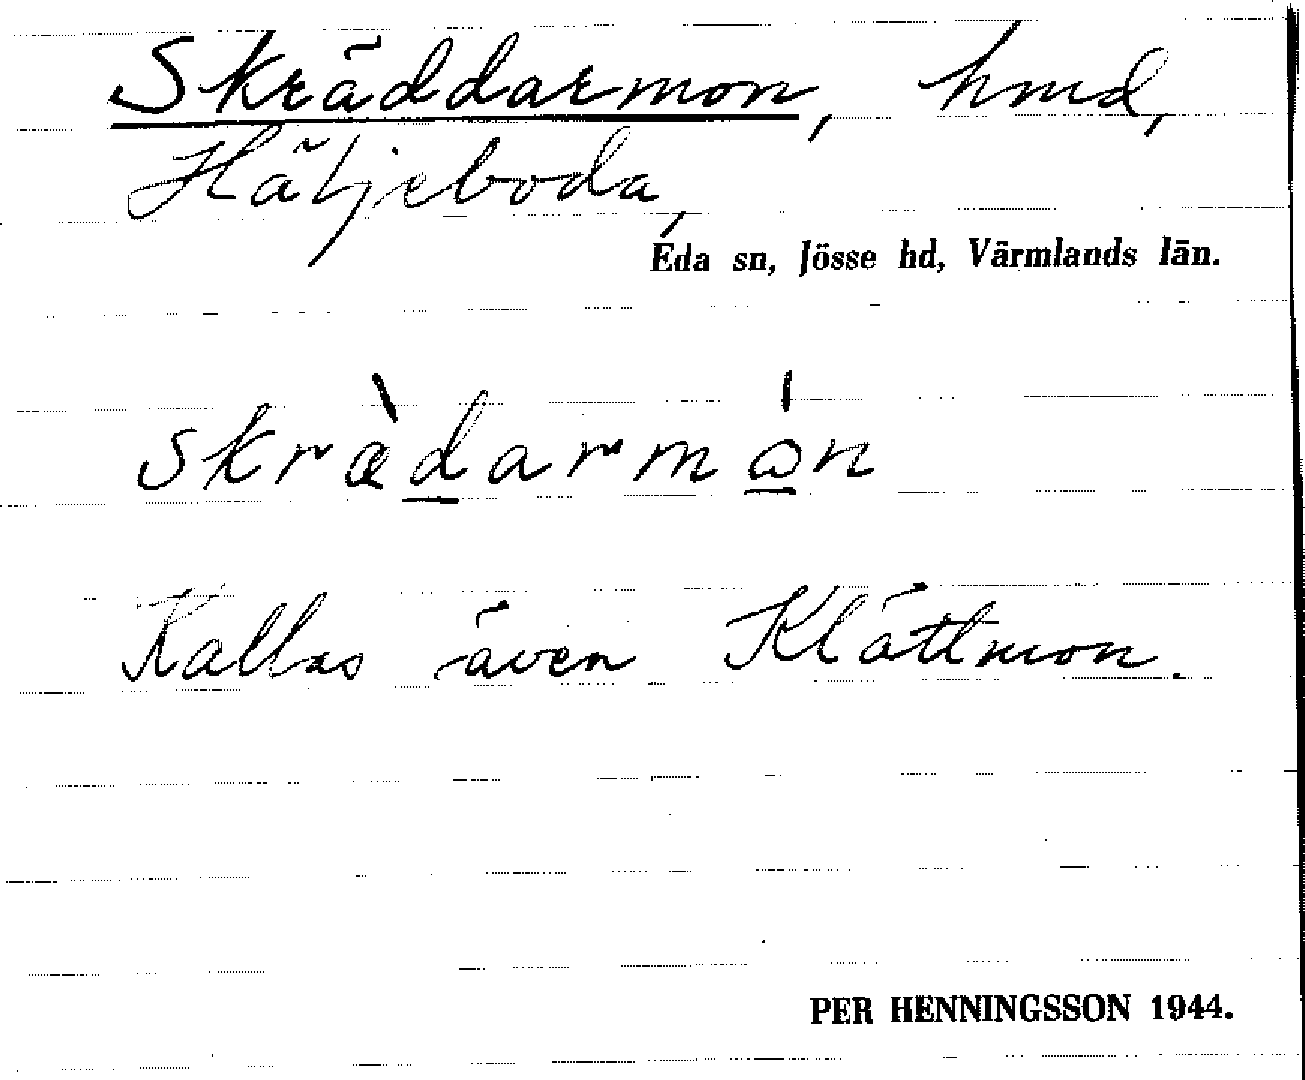 Skräddarmon, hmd,
Häljeboda,
Eda sn, Jösse hd, Värmlands län.
skræ̀darmón
Kallas även Klättmon.
PER HENNINGSSON 1944.